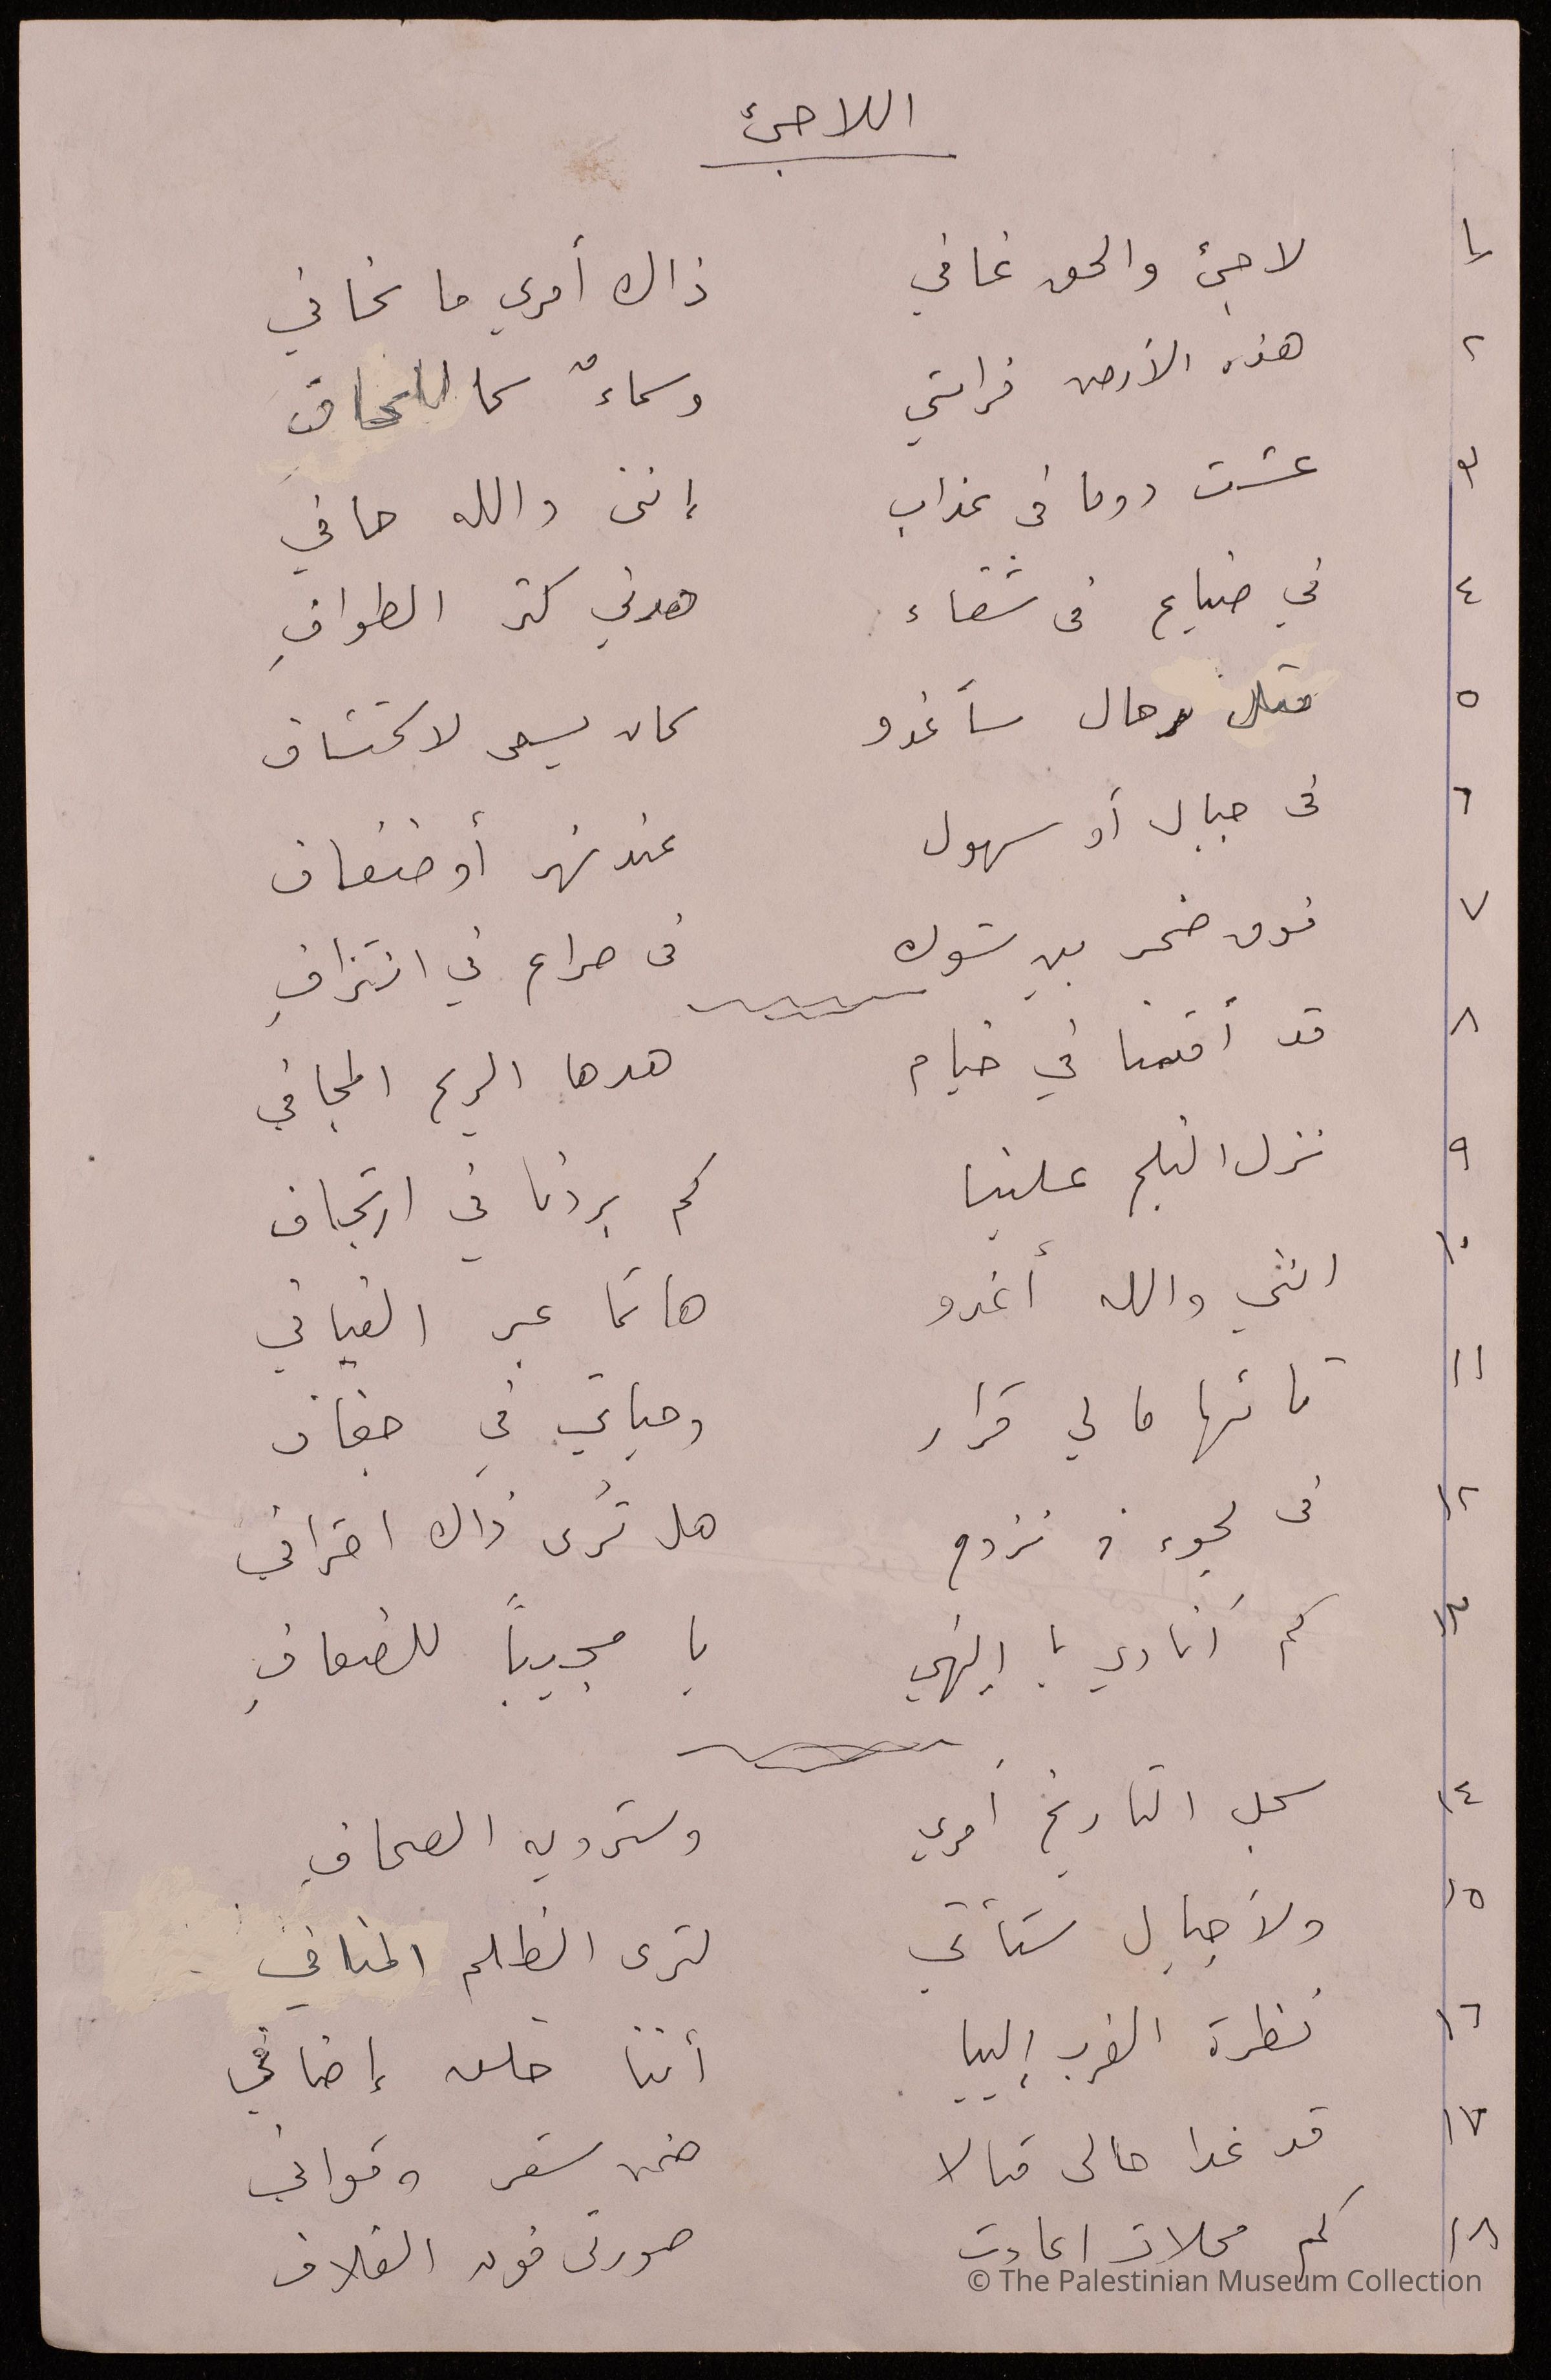 اللاجئ
١ لاجئ والحق غافي ذاك أمري ما تخافي
٢ هذه الأرض فراشي وسماءٌ كاللحاف
٣ عشت دوما في عذاب إنني والله حافي
٤ في ضياع في شقاء هدني كثر الطوافِ
٥ مثل رحال سأغدو كان يسعى لاكتشاف
٦ في جبال أو سهول عند نهر أو ضفاف
٧ فوق صخر بين شوك في صراع في انتزافِ
٨ قد أقمنا في خيام هدها الريح المجافي
٩ نزل الثلج علينا كم بردنا في ارتجاف
١٠ انني والله أغدو هائما عبر الفيافي
١١ تائها مالي قرار وحياتي في جفاف
١٢ في لجوء في نزوح هل تُرى ذاك احترافي
١٣ كم أنادي يا إلهي يا مجيباً للضعافِ
١٤ سجل التاريخ أمري وسترويه الصحافِ
١٥ ولأجيال ستأتي لترى الظلم المنافي
١٦ نظرة الغرب إلينا أننا خلق إضافي
١٧ قد غدا حالي مثالا ضمن شعر وقوافي
١٨ كم مجلات اعادت صورتي فوق الغلاف
© The Palestinian Museum Collection